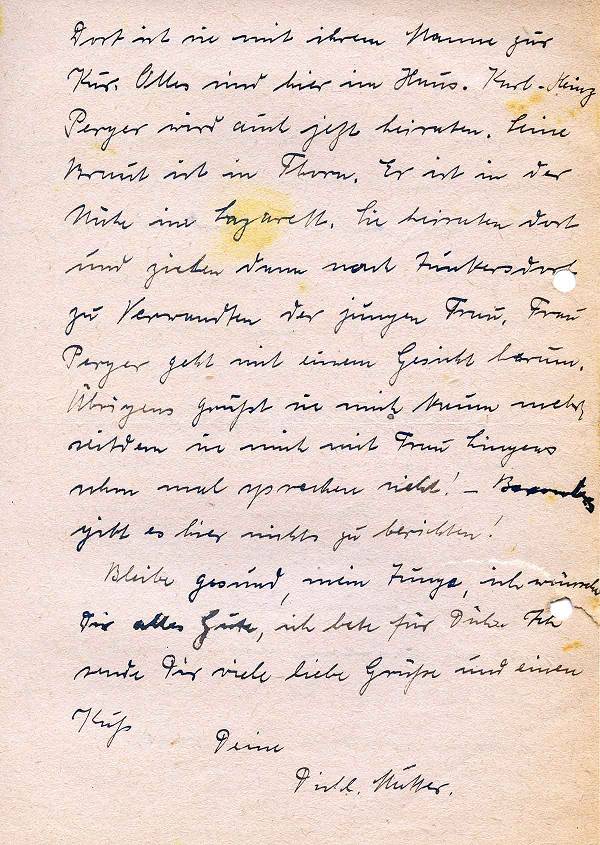 Dort ist sie mit ihrem Manne zur
Kur. Alles sind hier im Haus. Karl-Heinz
Perger wird auch jetzt heiraten. Seine
Braut ist in Thorn. Er ist in der
Nähe im Lazarett. Sie heiraten dort
und ziehen dann nach Junkersdorf
zu Verwandten der jungen Frau. Frau
Perger geht mit einem Gesicht herum.
Übrigens grüßt sie mich kaum mehr,
seitdem sie mich mit Frau Lingens
schon mal sprechen sieht! –
gibt es hier nichts zu berichten!
Bleibe gesund, mein Junge, ich wünsche
Dir alles Gute, ich bete für Dich. Ich
sende Dir viele liebe Grüße und einen
Kuß
Deine
Mutter.